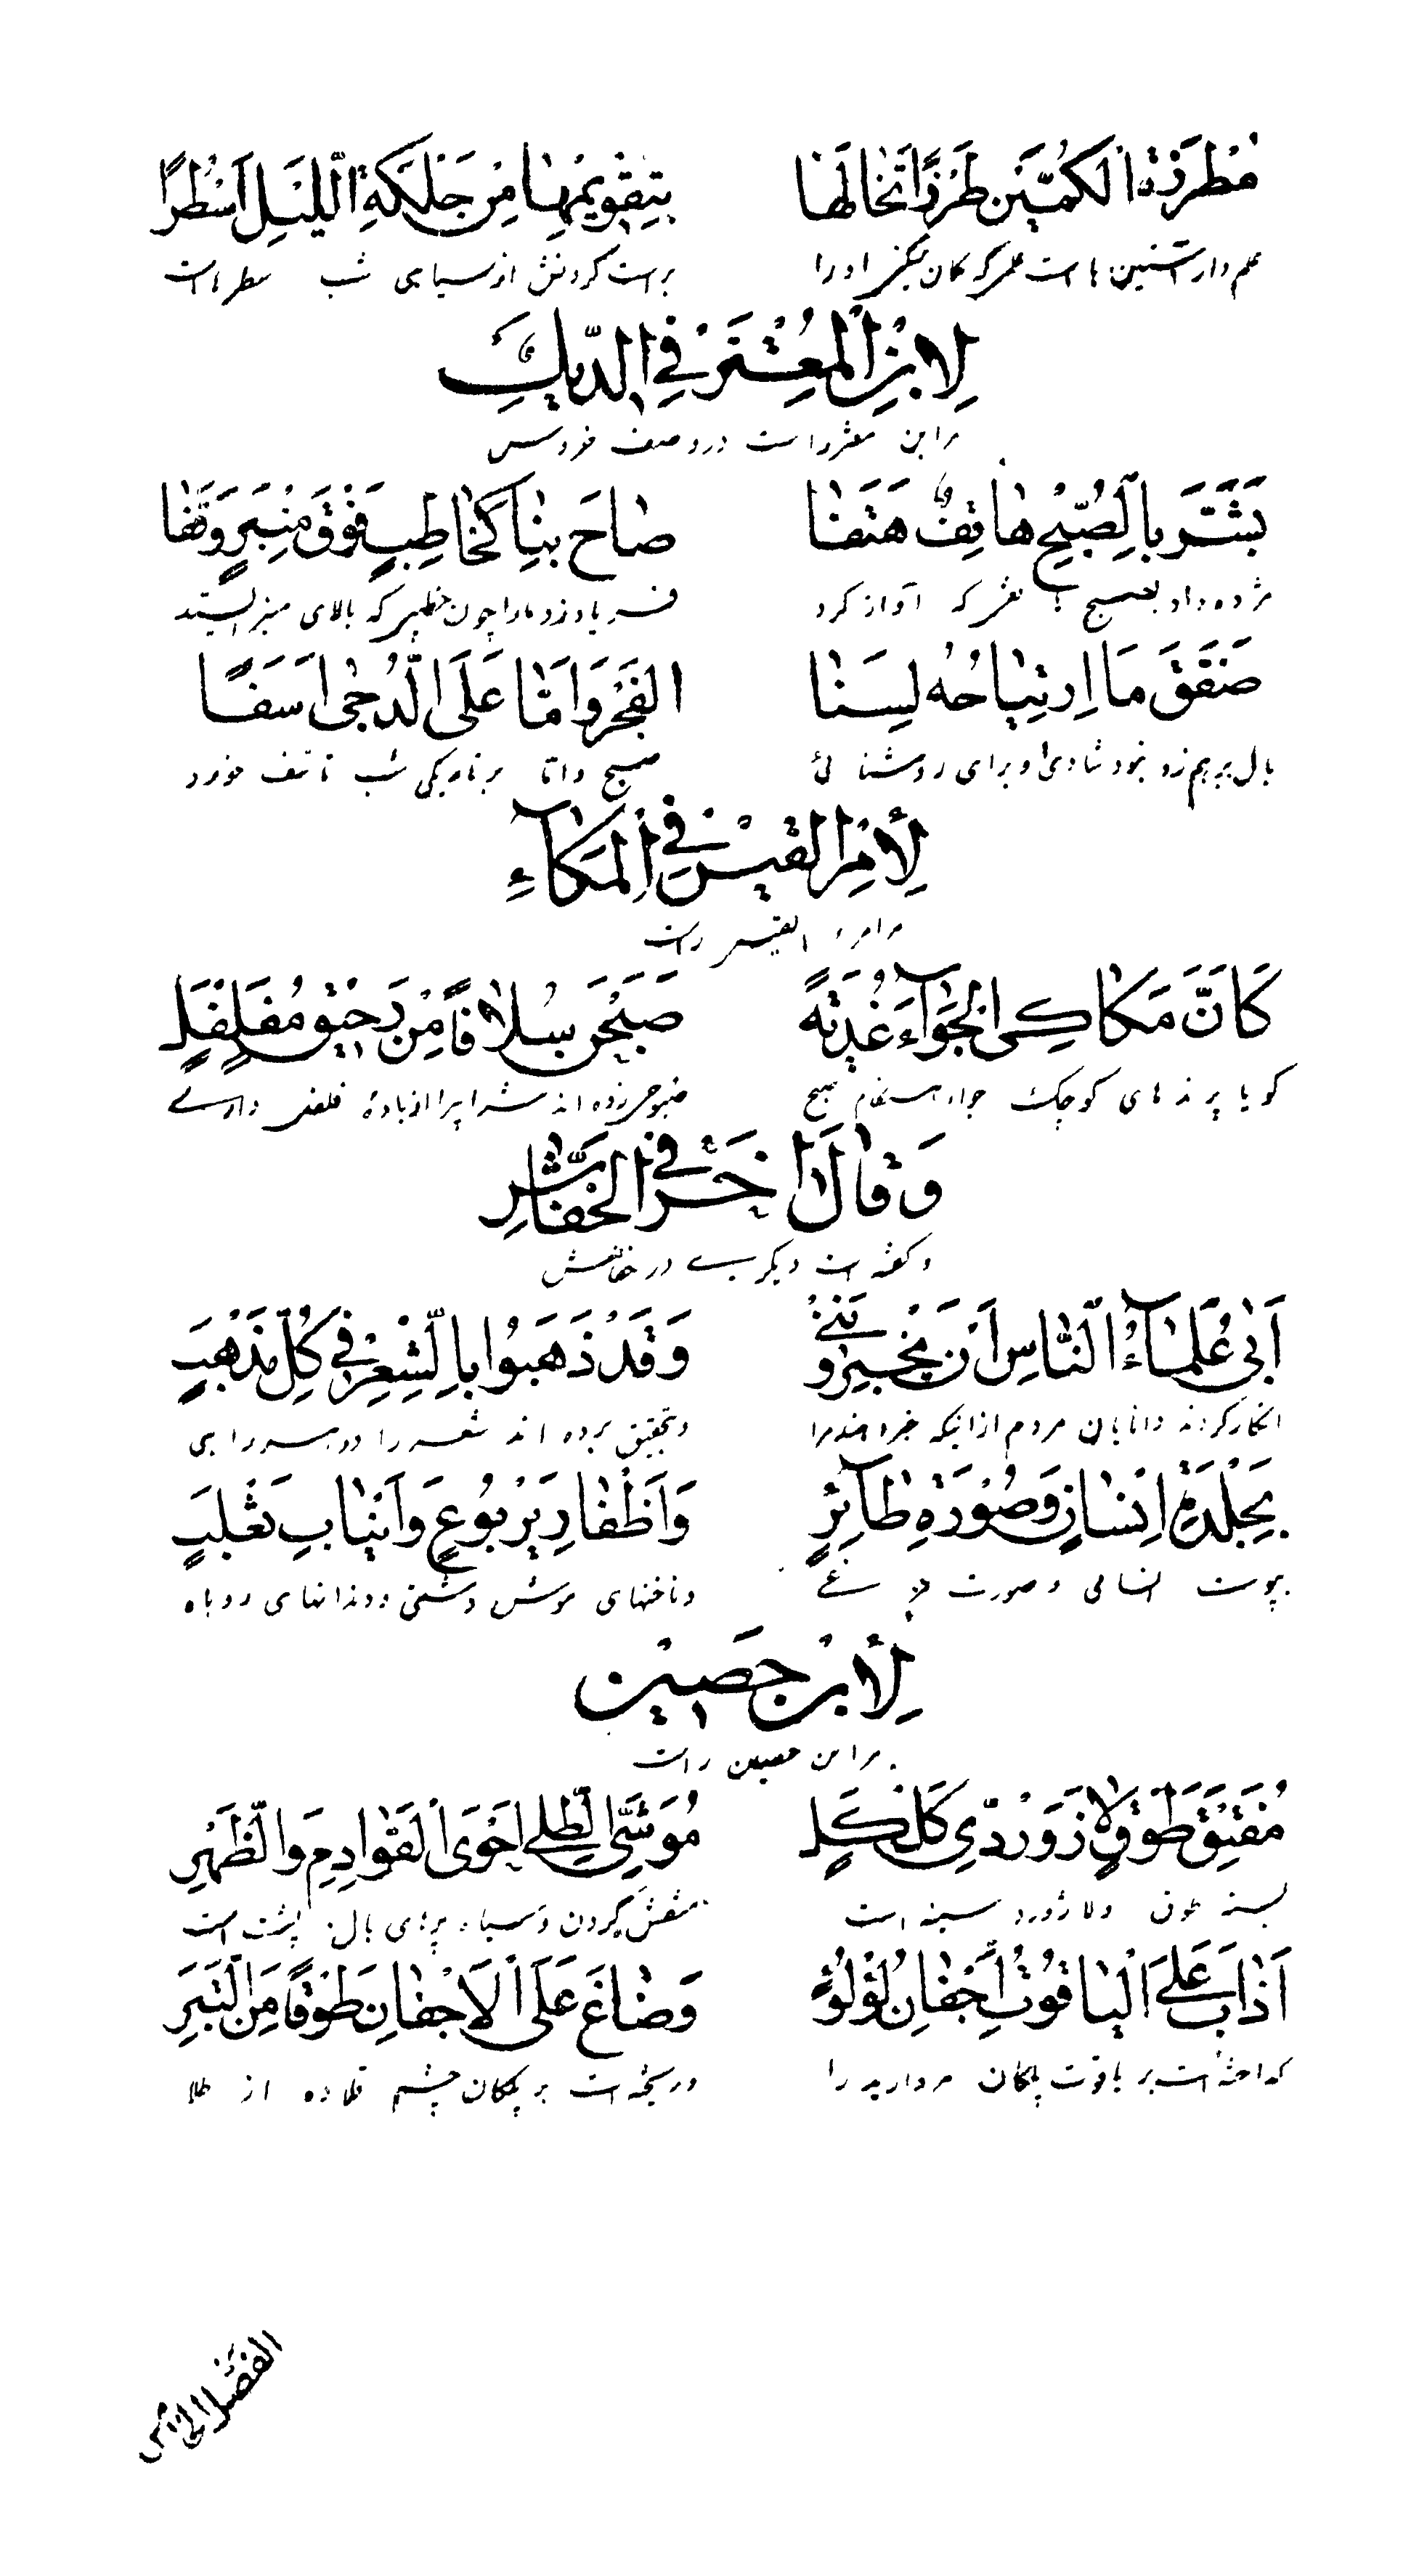 مُطَرَّزَةُ الكُمَّيْنِ طَرْزًا تَخَالُهَا بِتَقْوِيمِهَا مِنْ حَلْكَةِ اللَّيْلِ اَسْطُرًا
علم دار آستینها است علمی که کمان میکنی او را براست کردنش از سیاهی شب سطرهاست
لِابْنِ الْمُعْتَزِّ فِي الدِّيكِ
مر ابن معتز راست در وصف خروس
بَشَّرَ بِالصُّبْحِ هَاتِفٌ هَتَفَا صَاحَ بِنَا كَخَاطِبٍ فَوْقَ مِنْبَرٍ وَقَفَا
مژده داد بصبح که آواز کرد فریاد زد ما را چون خطیبی که بالای منبر ایستد
صَفَّقَ مَا اِرْتِيَاحُهُ لِسَنَا الفَجْرِ وَاَمَّا عَلَى الدُّجٰى اَسَفًا
بال بر هم زد شادی او برای روشنائی صبح واما بر تاریکی شب تاسف خورد
لِأَمْرِءِ القَيْسِ فِي الْمَكَّاءِ
مر امرء القیس راست
كَاَنَّ مَكَاكِيَ الْجِوَآءِ غُدَيَّةً صُبِحْنَ سُلَافًا مِنْ رَحِيقٍ مُفَلْفَلٍ
گویا پرندهای کوچک جواء هنگام صبح صبوحی زده اند شرابی را از بادۀ فلفل داری
وَقَالَ اٰخَرُ فِي الخَفَّاشِ
و گفته است دیگری در خفاش
اَبٰى عُلَمَآءُ النَّاسِ اَنْ يُخْبِرُونَنِي وَقَدْ ذَهَبُوا بِالشِّعْرِ فِي كُلِّ مَذْهَبٍ
انکار کردند دانایان مردم از اینکه خبر دهند مرا و بتحقیق برده اند شعر را در هر راهی
بِجِلْدَةِ اِنْسَانٍ وَصُورَةِ طَآئِرٍ وَاَظْفَارِ يَرْبُوعٍ وَاَنْيَابِ ثَعْلَبٍ
بپوست انسانی و صورت مرغی و ناخنهای موش دشتی و دندانهای روباه
لِأبْنِ حُصَيْنٍ
مر ابن حصین راست
مُفَتَّقُ طَوْقٍ لَازَوَرْدِيِّ كَلْكَلٍ مُوَشَّى الطُّلٰى اَحْوَى الْقَوَادِمِ وَالظَّهْرِ
طوق و لاژورد سینه است منقش گردن و سیاه پرهای بال و پشت است
اَذَابَ عَلَى الْيَاقُوتِ اَجْفَانِ لُؤْلُؤٍ وَصَاغَ عَلَى الْاَجْفَانِ طَوْقًا مِنَ التِّبْرِ
گداخته است بر یاقوت پلکان مروارید را و ریخته است بر پلکان چشم قلاده از طلا
الفَصْلُ الخَامِسُ